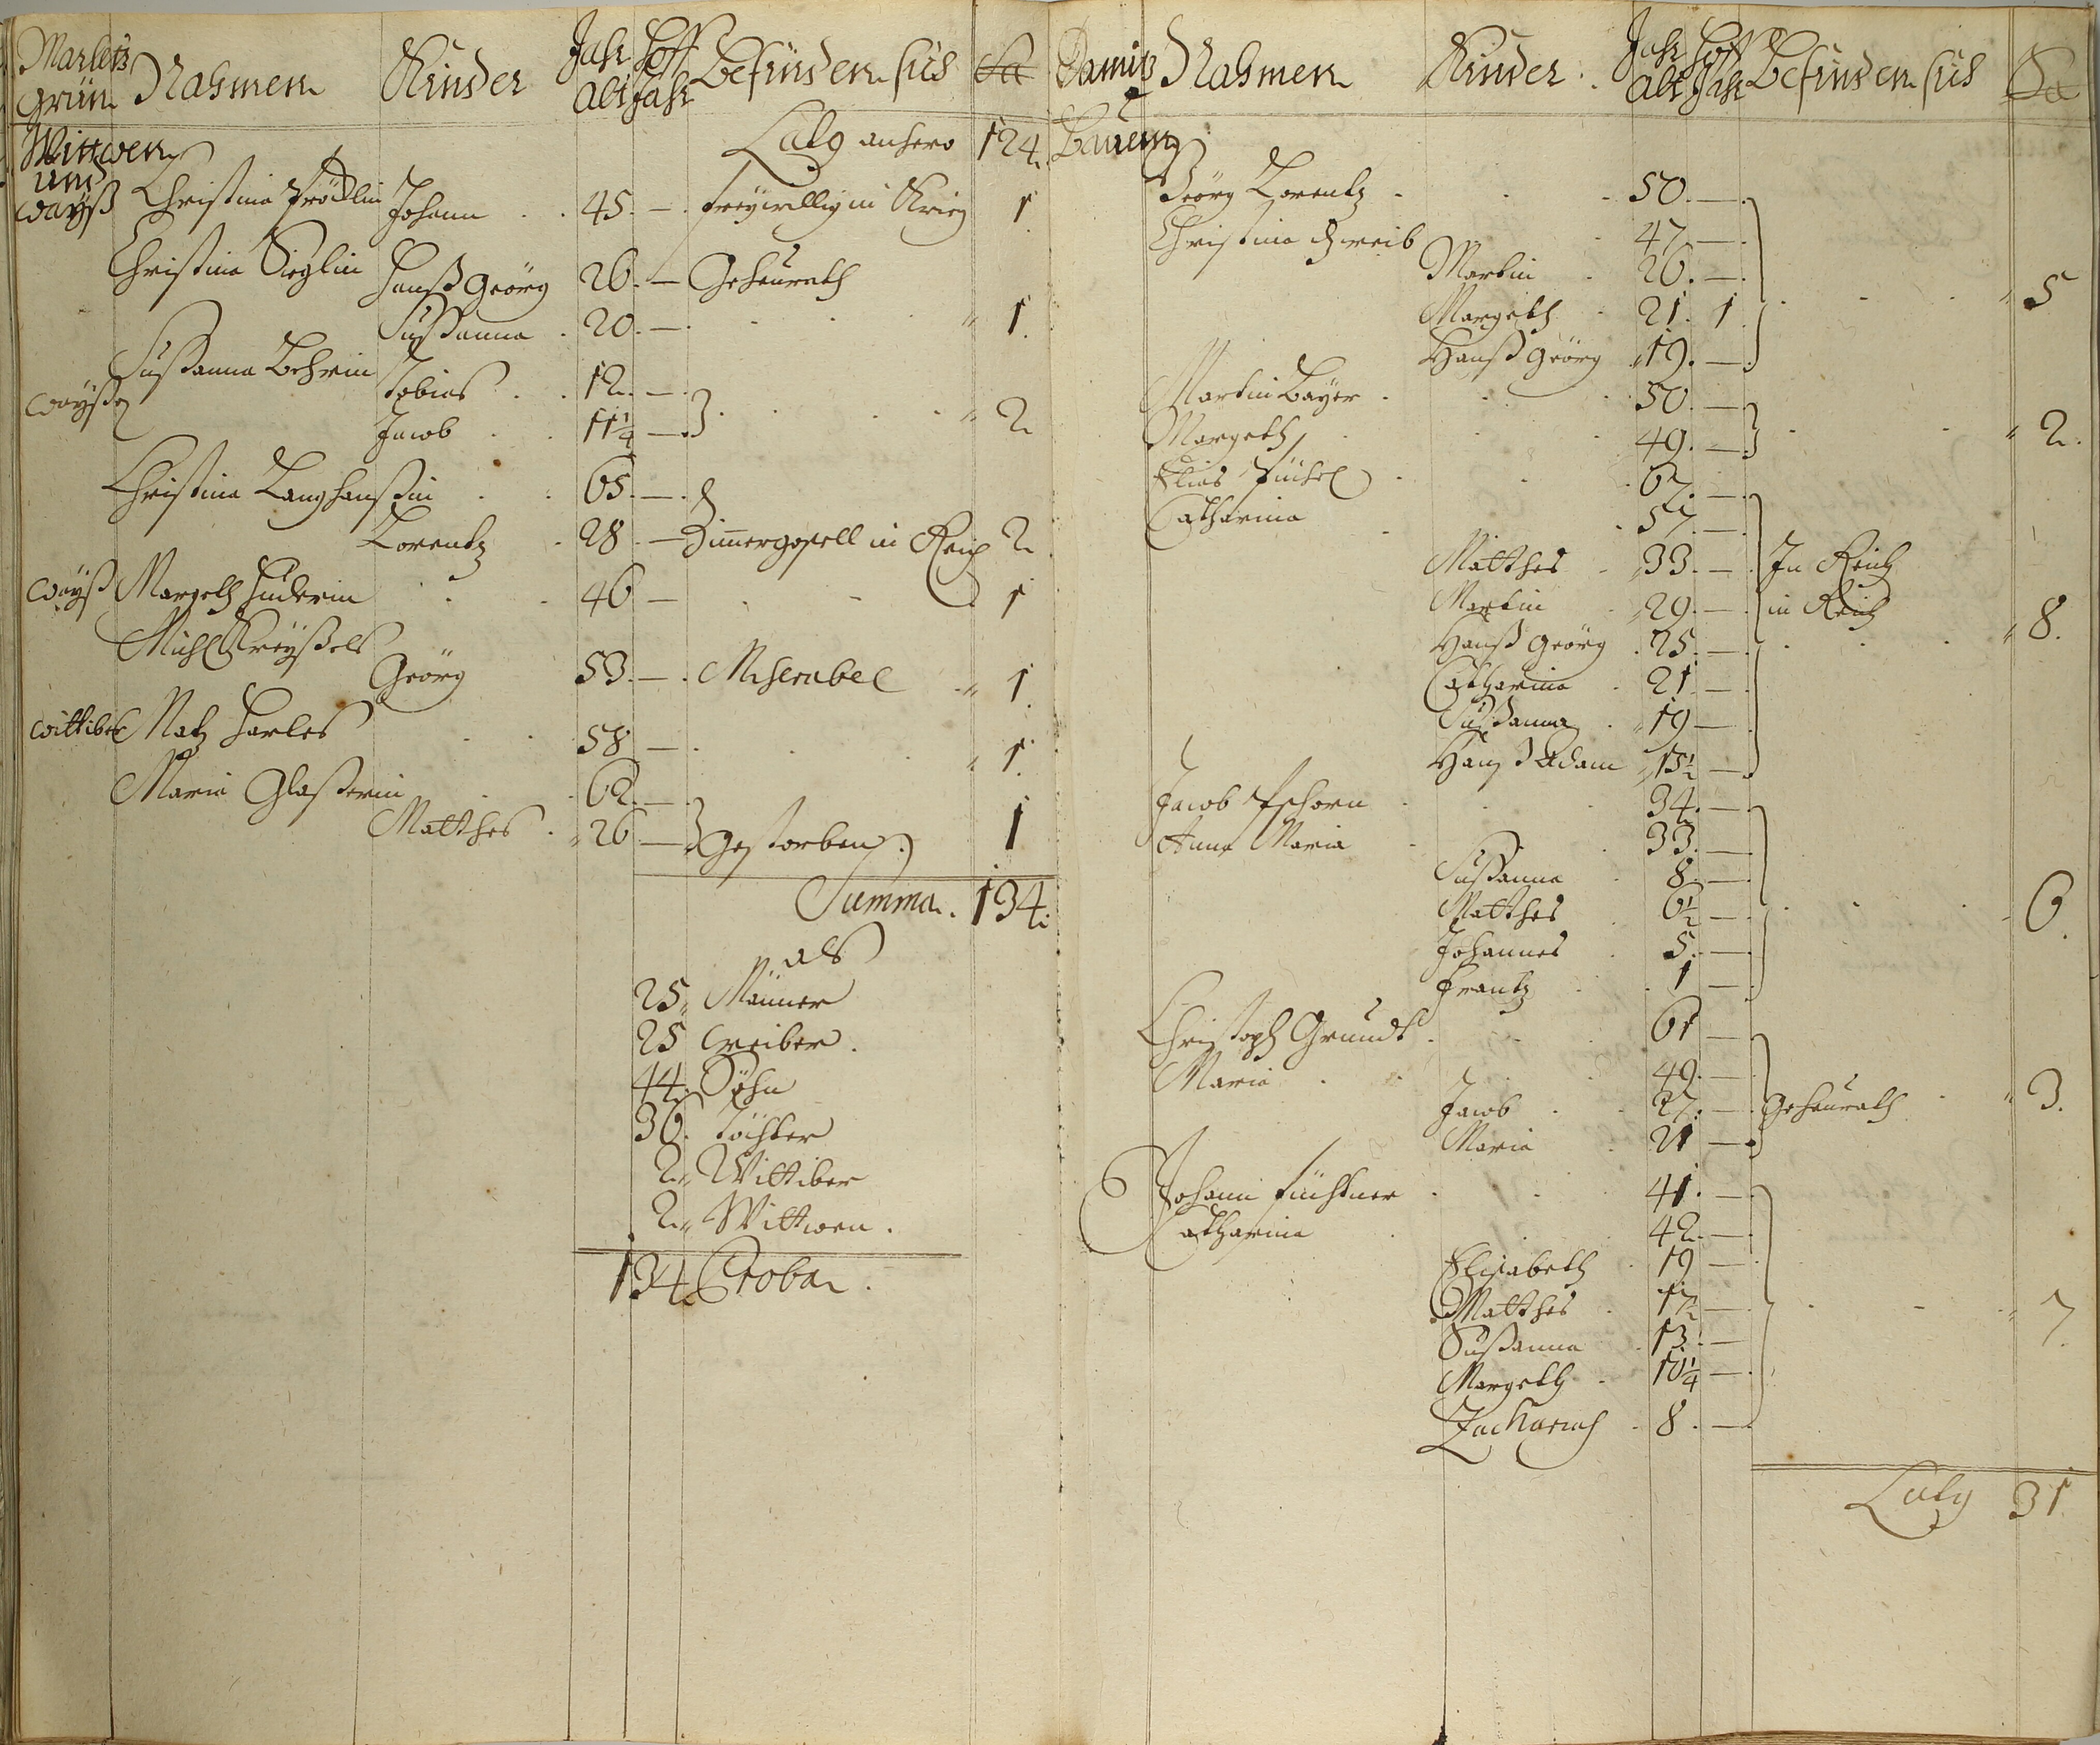 Marlets
grün Nahmen Kinder Jahr Hoff Befünden sich Sa
Alt Jahr
Lalg anhero 124.
Wittwen
und
Wayß Christina Frödlin Johann 45. — freywillig in Krieg 1
Christina Sieglin Hanß Georg 26. — Geheurath
Sußanna 20. — 1.
Sußanna Behrin
Wayßen Tobias 12. —
Jacob 11¼ — 2
Christina Langhanßin 65. —
Lorentz 28 — Zimergesell in Reich 2
Wayß Margeth Huderin 46 — 1
Michl Kreyßels
Georg 53. — Miserabel 1.
Wittiber Matz Harles 58 — 1.
Maria Glaßerin 62. —
Matthes 26 — gestorben 1
Summa. 134.
als
25. Männer
25 Weiber.
44. Söhn
36. Töchter
2. Wittiber
2. Wittwen.
134. Proba.
Damitz Nahmen Kinder. Jahr Hoff Befünden sich Sa
Alt Jahr
Bauern
Georg Lorentz 50. —
Christina d. weib 47 —
Martin 26. —
Margeth 21. 1 5
Hanß Georg 19. —
Martin Bayer 50. —
Margeth 49. — 2.
Elias Füchsel 67. —
Catharina 57. —
Matthes 33. — In Reich
Martin 29. — in Reich
Hanß Georg 25. — 8.
Catharina 21 —
Sußanna 19 —
Hanß Adam 13½ —
Jacob Pschorn 34. —
Anna Maria 33. —
Sußanna 8. —
Matthes 6½ — 6.
Johannes 5. —
Frantz 1 —
Christoph Grundt 61 —
Maria 49. —
Jacob 27. — Geheurath 3.
Maria 21 —
Johann Füchtner 41. —
Catharina 42. —
Elisabeth 19 —
Matthes 17½ — 7.
Sußanna 13. —
Margeth 10¼ —
Zacharias 8. —
Lalg 31